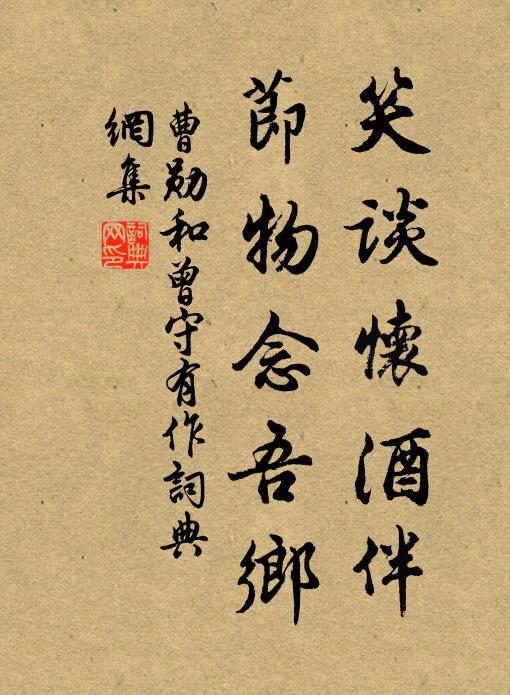 笑谈懷酒伴
莭物念吾鄉
曹勛和曾守有作詞典
網集
詞典
网印